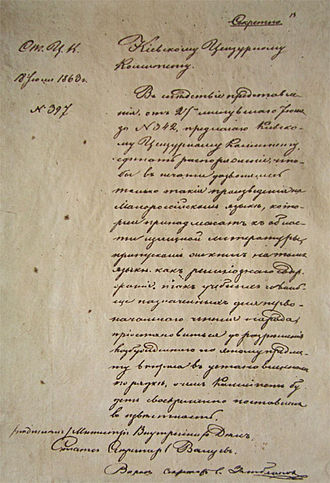 Секретно
От. М. В. Д.
18 Іюля 1863 г.
№ 397
Кіевскому Цензурному
Комитету.
Въ слѣдствіе представле-
нія, отъ 27го минувшаго Іюня
за № 342, предлагаю Кіевско-
му Цензурному Комитету,
сдѣлать распоряженіе, что-
бы въ печати дозволялись
только такія произведенія на
Малороссійскомъ языкѣ, кото-
рыя принадлежатъ къ обла-
сти изящной литературы;
пропускомъ книгъ на томъ
языкѣ, какъ религіознаго содер-
жанія, такъ учебныхъ и вооб-
ще назначаемыхъ для перво-
начальнаго чтенія народа,
пріостановиться до разрѣшенія
возбужденнаго по этому предме-
ту вопроса въ установленномъ
порядкѣ, о чемъ Комитетъ бу-
детъ своевременно поставленъ
въ извѣстность.
(подписалъ) Министръ Внутреннихъ Дѣлъ,
Статсъ Секретарь Валуевъ.
Секретарь